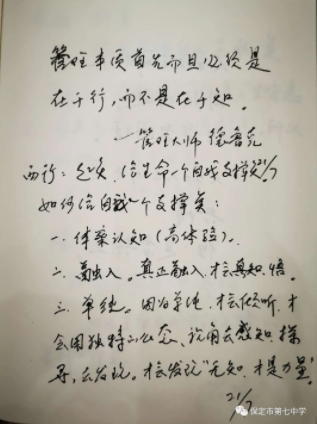 管理本质首先而且必须是
在于行,而不是在于知。
—管理大师 德鲁克
西行:起奂 给生命一个自我支撑 21/7
如何给自我一个支撑奂:
一、体柔认知(高体验)。
二、融入。真正融入,才会真知、悟。
三、单纯。因为单纯,才会倾听,才
会用独特的心态、视角去感知、探
寻,去发现。才会发现“无知”才是力量。
21/7
保定市第七中学